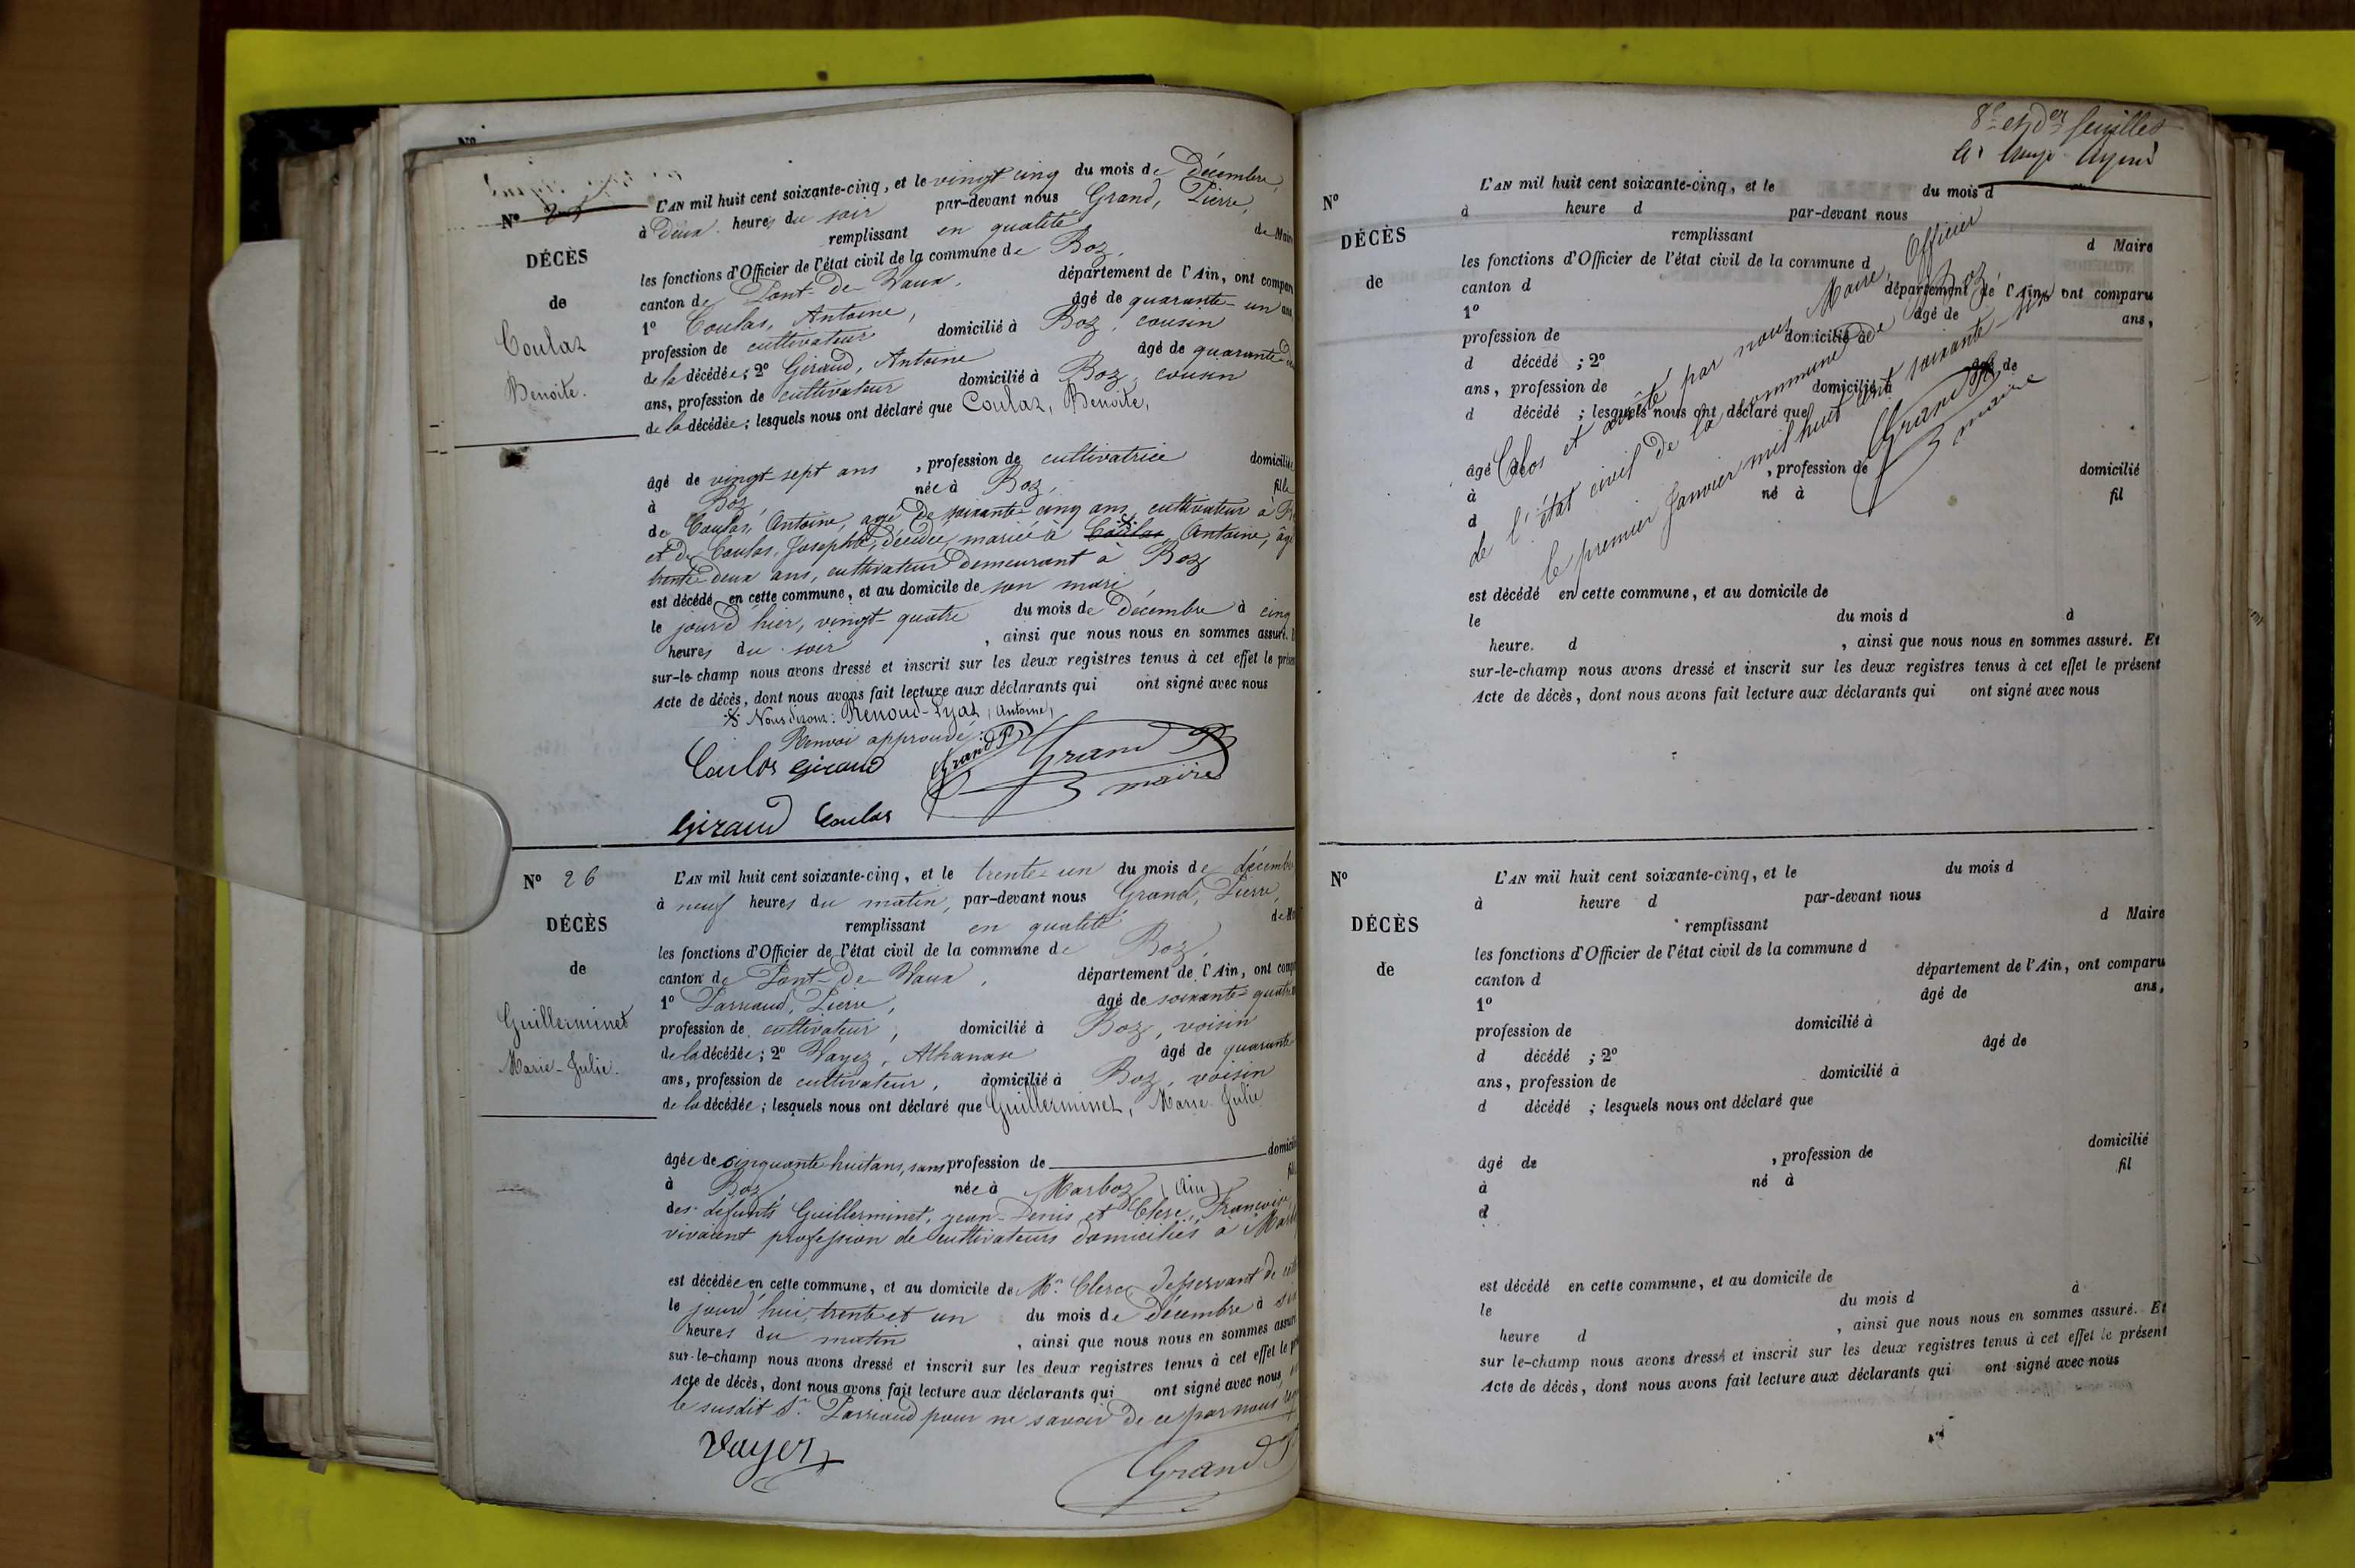 N° 25
DÉCÈS
de
Coulas
Benoite.
L'AN mil huit cent soixante-cinq, et le vingt cinq du mois de Décembre,
à Deux heures du soir par-devant nous Grand, Pierre,
remplissant en qualité de Maire
les fonctions d'Officier de l'état civil de la commune de Boz,
canton de Pont-de-Vaux, département de l'Ain, ont comparu
1° Coulas, Antoine, âgé de quarante-un ans
profession de cultivateur domicilié à Boz, cousin
de la décédée; 2° Giraud, Antoine âgé de quarante
ans, profession de cultivateur domicilié à Boz, cousin
de la décédée; lesquels nous ont déclaré que Coulas, Benoite,
âgé de vingt-sept ans, profession de cultivatrice domicilié
à Boz, née à Boz, fille
de Coulas, Antoine, agé de soixante cinq ans, cultivateur à
et de Coulas, Josephte, décédée, mariée à Coulas Antoine, âgé
trente deux ans, cultivateur demeurant à Boz
est décédé en cette commune, et au domicile de son mari
le jour d'hier, vingt-quatre du mois de Décembre à cinq
heures du soir, ainsi que nous nous en sommes assuré.
sur-le-champ nous avons dressé et inscrit sur les deux registres tenus à cet effet le présent
Acte de décès, dont nous avons fait lecture aux déclarants qui ont signé avec nous
Nous disons: Renoud-Lyat, Antoine,
Renvoi approuvé:
Coulas Giraud Grand P Grand P
maire
Giraud Coulas
N° 26
DÉCÈS
de
Guilleminet
Marie-Julie.
L'AN mil huit cent soixante-cinq, et le trente-un du mois de décembre
à neuf heures du matin, par-devant nous Grand, Pierre,
remplissant en qualité de
les fonctions d'Officier de l'état civil de la commune de Boz,
canton de Pont-de-Vaux, département de l'Ain, ont
1° Parriaud, Pierre, âgé de soixante-quatre
profession de cultivateur, domicilié à Boz, voisin
de la décédée; 2° Vayer, Athanase âgé de quarante
ans, profession de cultivateur, domicilié à Boz, voisin
de la décédée; lesquels nous ont déclaré que Guillerminet, Marie-Julie
âgée de cinquante huit ans, sans profession de domicilié
à Boz, née à Marboz (Ain)
des défunts Guillerminet, Jean-Denis et Clerc, Françoise,
vivaient profession de cultivateurs domiciliés à
est décédée en cette commune, et au domicile de Mr. Clerc desservant de
le jourd'hui, trente et un du mois de Décembre à
heures du matin, ainsi que nous nous en sommes assuré
sur-le-champ nous avons dressé et inscrit sur les deux registres tenus à cet effet le
Acte de décès, dont nous avons fait lecture aux déclarants qui ont signé avec nous,
le susdit Sr. Parriaud pour ne savoir de ce par nous
Vayer
Grand P
8e et der feuillet
N°
DÉCÈS
de
L'AN mil huit cent soixante-cinq, et le du mois d
à heure d par-devant nous
remplissant d Maire
les fonctions d'Officier de l'état civil de la commune d
canton d département de l'Ain, ont comparu
1° âgé de ans,
profession de domicilié à
d décédé ; 2° âgé de
ans, profession de domicilié à
d décédé ; lesquels nous ont déclaré que
âgé de , profession de domicilié
à né à fil
d
Clos et arrêté par nous Maire, Officier
de l'état civil de la commune de Boz
le premier Janvier mil huit cent soixante-six
Grand P
maire
est décédé en cette commune, et au domicile de
le du mois d à
heure. d , ainsi que nous nous en sommes assuré. Et
sur-le-champ nous avons dressé et inscrit sur les deux registres tenus à cet effet le présent
Acte de décès, dont nous avons fait lecture aux déclarants qui ont signé avec nous
N°
DÉCÈS
de
L'AN mil huit cent soixante-cinq, et le du mois d
à heure d par-devant nous
remplissant d Maire
les fonctions d'Officier de l'état civil de la commune d
canton d département de l'Ain, ont comparu
1° âgé de ans,
profession de domicilié à
d décédé ; 2° âgé de
ans, profession de domicilié à
d décédé ; lesquels nous ont déclaré que
âgé de , profession de domicilié
à né à fil
d
est décédé en cette commune, et au domicile de
le du mois d à
heure d , ainsi que nous nous en sommes assuré. Et
sur le-champ nous avons dressé et inscrit sur les deux registres tenus à cet effet le présent
Acte de décès, dont nous avons fait lecture aux déclarants qui ont signé avec nous